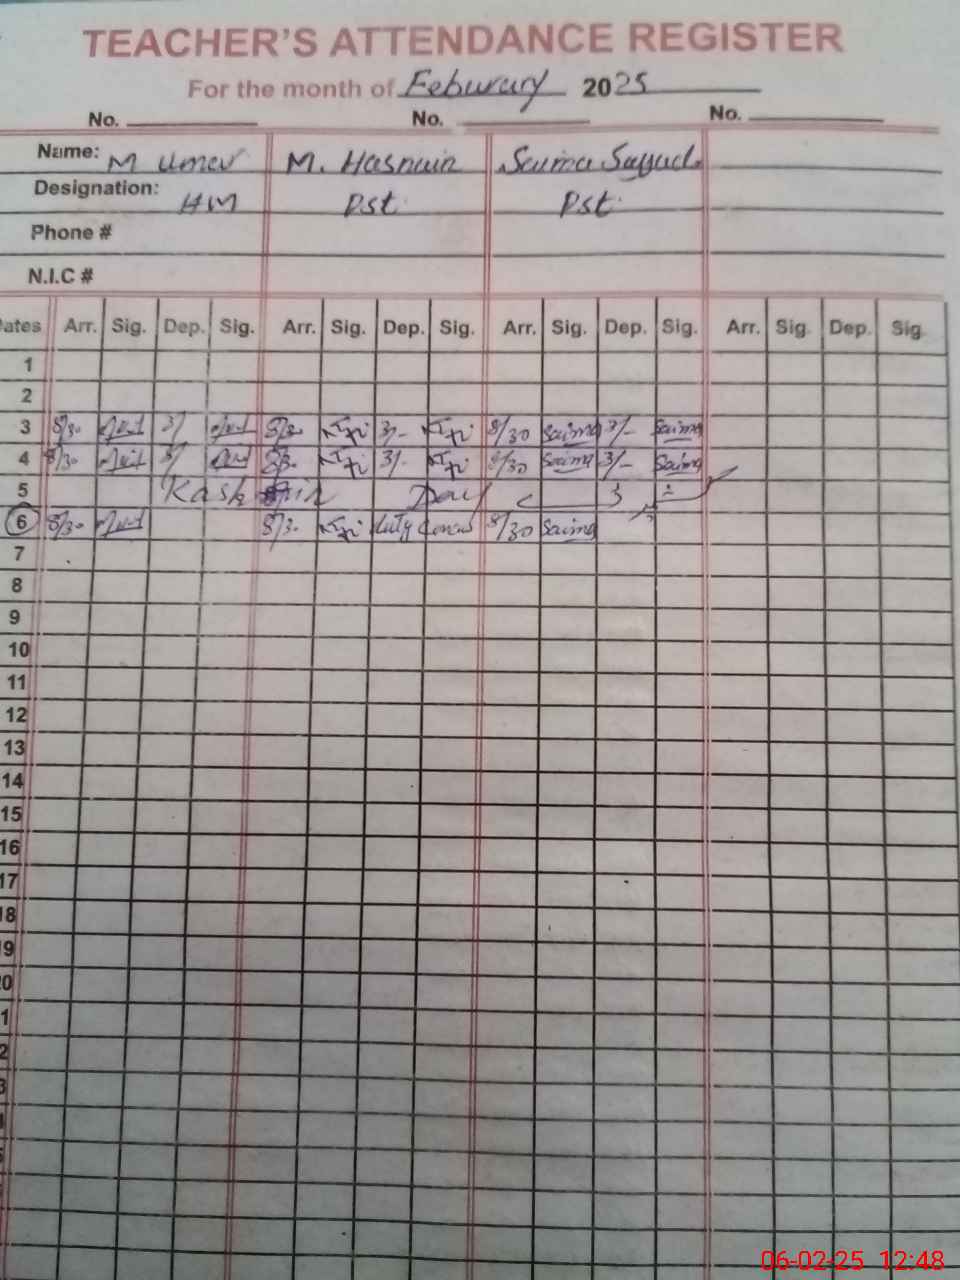 TEACHER'S ATTENDANCE REGISTER
For the month of Feburary 2025
No. No. No.
Name: M Umer M. Hasnain Saima Sayyed
Designation: HM Pst Pst
Phone #
N.I.C #
ates Arr. Sig. Dep. Sig. Arr. Sig. Dep. Sig. Arr. Sig. Dep. Sig. Arr. Sig. Dep. Sig.
1
2
3 8/30 3/ 8/30 3/- 8/30 Saima 3/- Saima
4 8/30 3/ 8/30 3/- 8/30 Saima 3/- Saima
5 Kashmir Day
6 8/30 8/30 duty 8/30 Saima
7
8
9
10
11
12
13
14
15
16
17
18
9
0
1
2
3
06-02-25 12:48